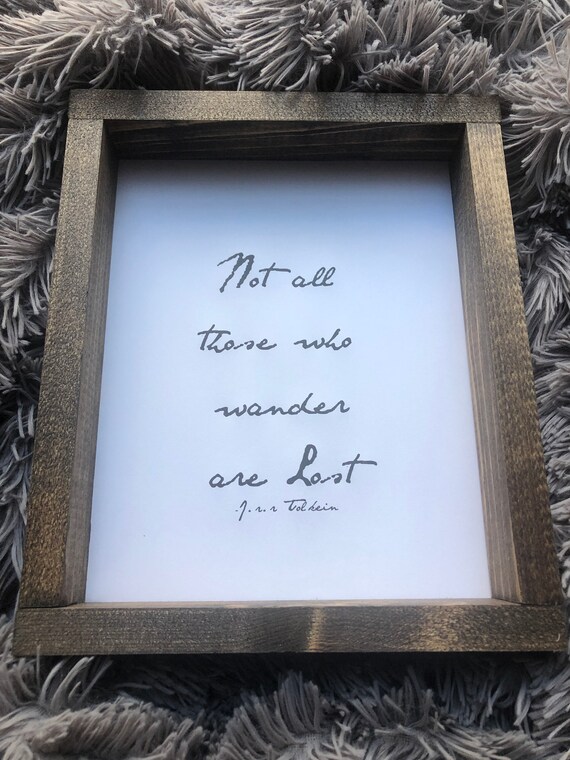 Not all
those who
wander
are Lost
.J. r. r Tolkein